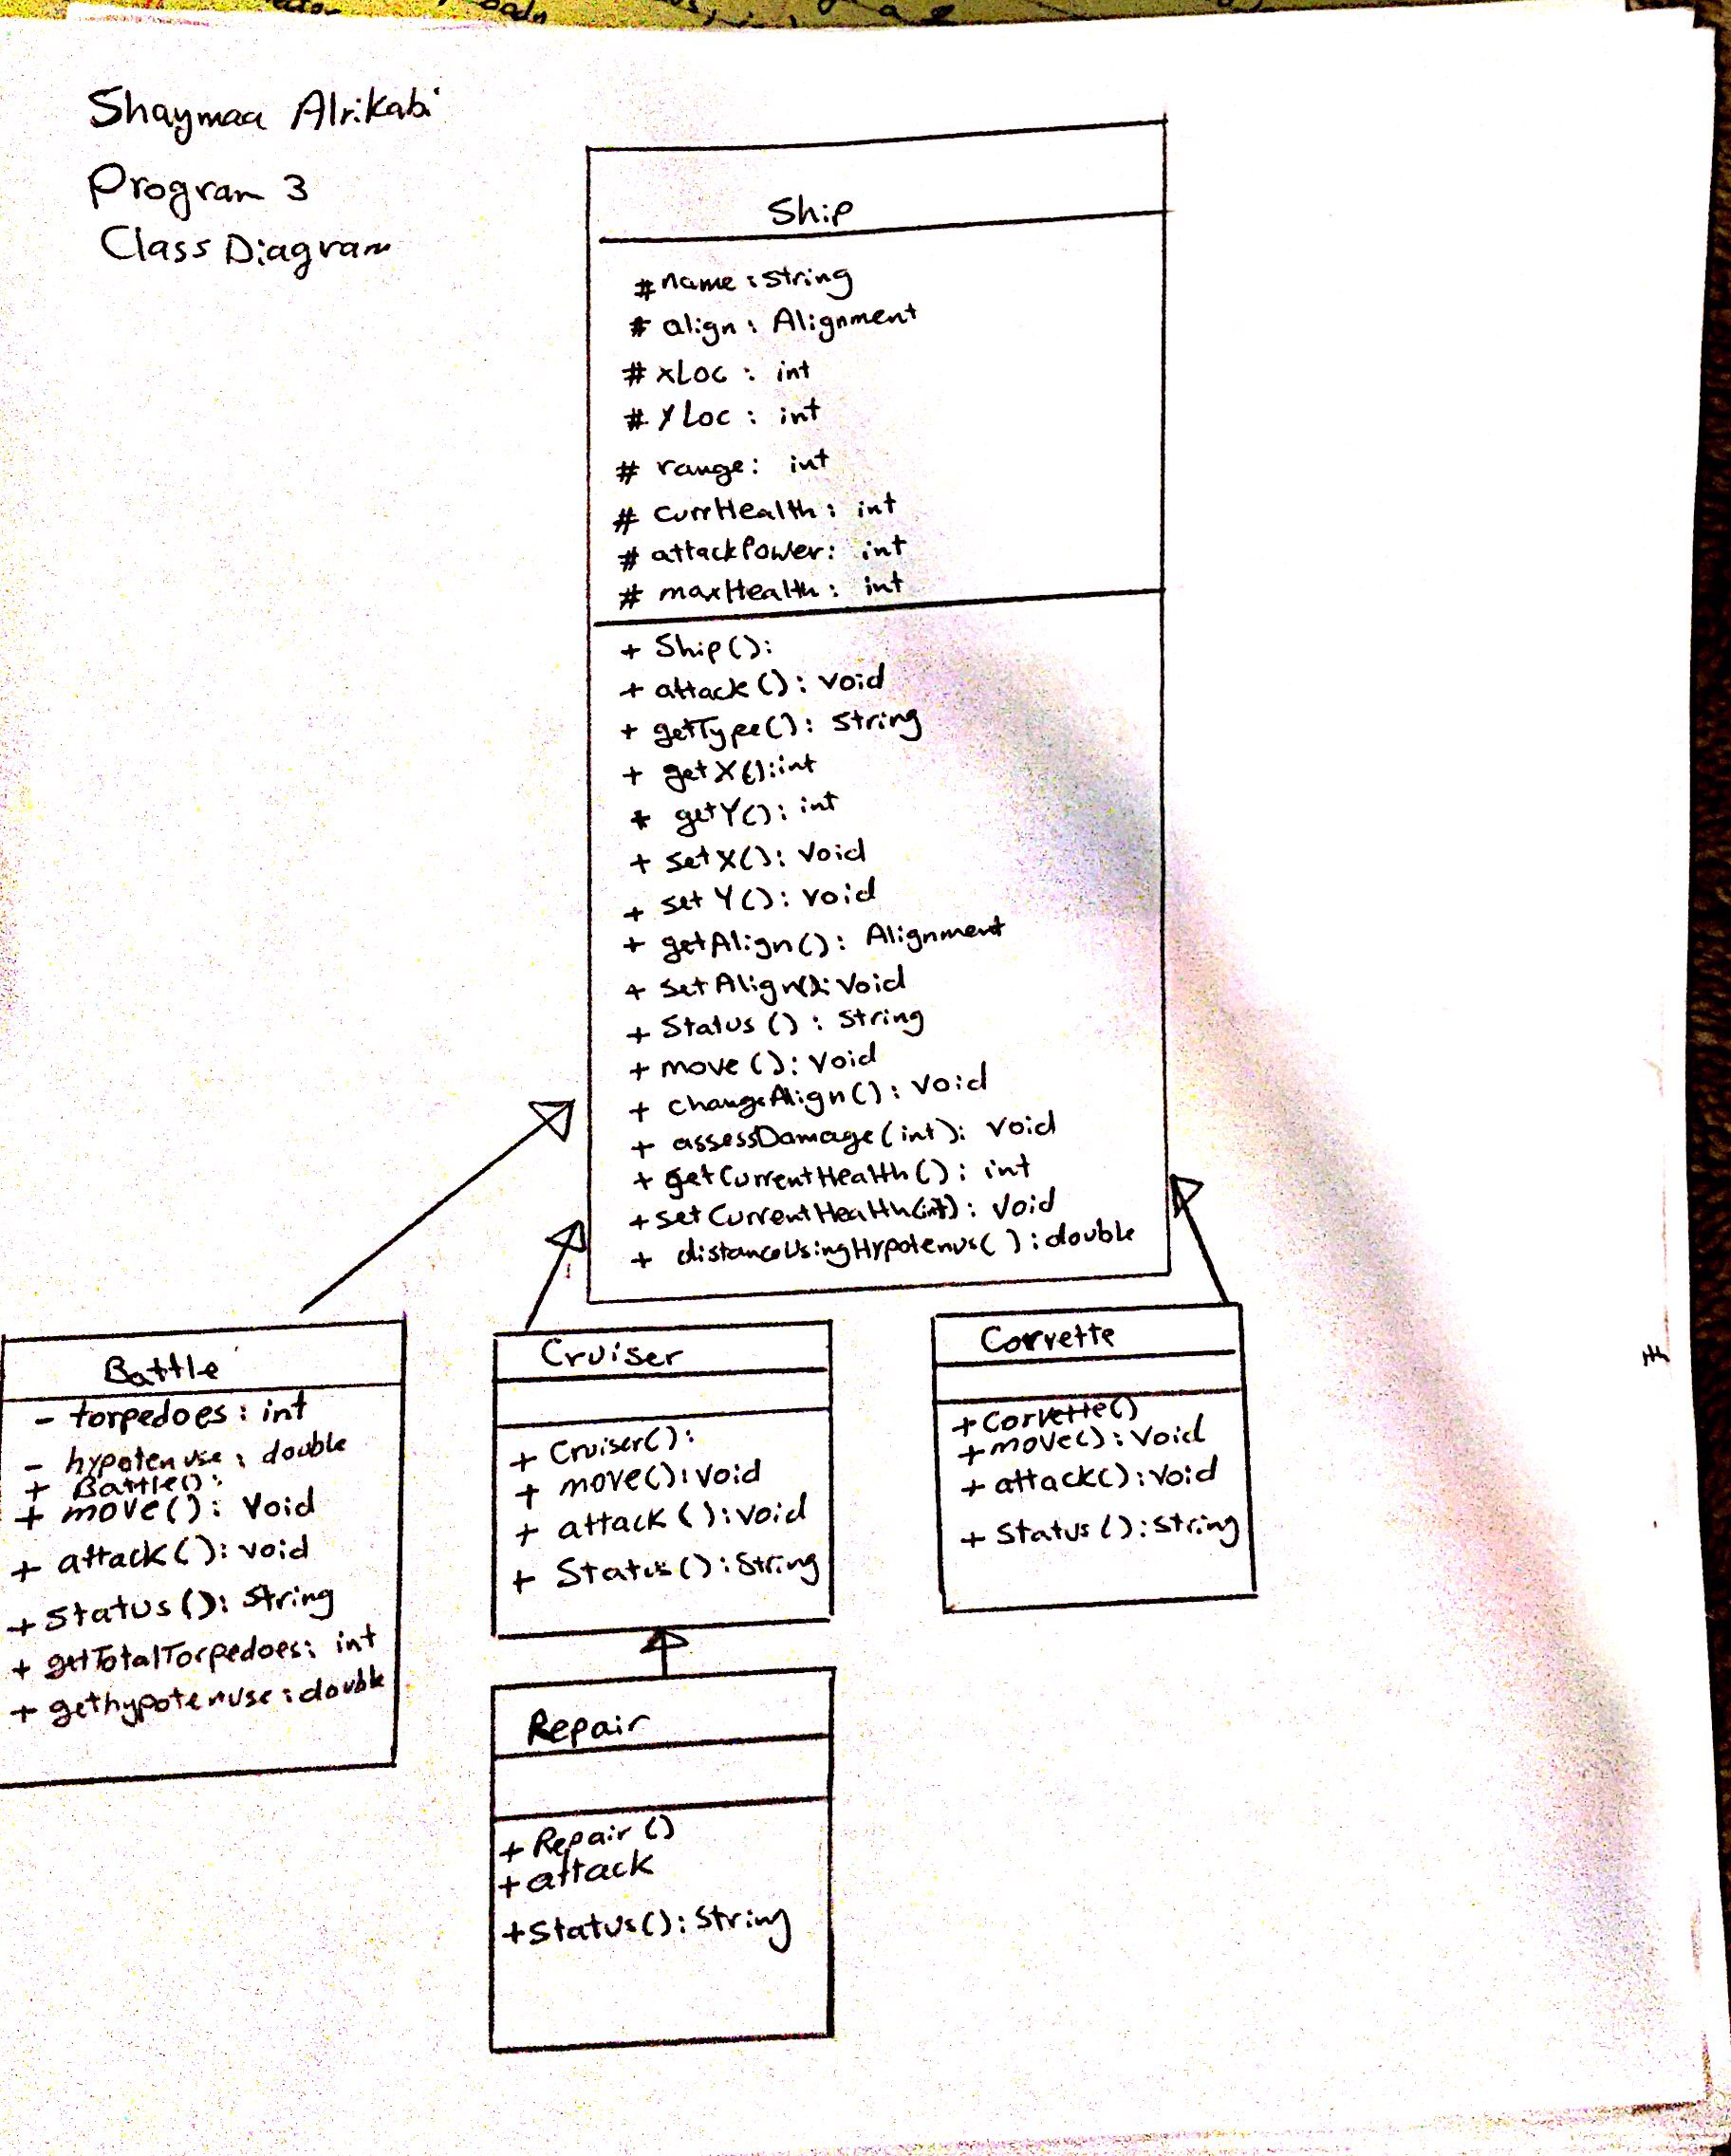 Shaymaa Alrikabi
Program 3
Class Diagram
Ship
# name : string
# align : Alignment
# xLoc : int
# yLoc : int
# range : int
# currHealth : int
# attackPower : int
# maxHealth : int
+ Ship():
+ attack() : void
+ getType() : String
+ getX() : int
+ getY() : int
+ setX() : void
+ setY() : void
+ getAlign() : Alignment
+ setAlign() : void
+ Status() : String
+ move() : void
+ changeAlign() : void
+ assessDamage(int) : void
+ getCurrentHealth() : int
+ setCurrentHealth(int) : void
+ distanceUsingHypotenus( ) : double
Battle
- torpedoes : int
- hypotenuse : double
+ Battle():
+ move() : Void
+ attack() : void
+ Status() : String
+ getTotalTorpedoes : int
+ gethypotenuse : double
Cruiser
+ Cruiser():
+ move() : void
+ attack() : void
+ Status() : String
Corvette
+ Corvette()
+ move() : Void
+ attack() : void
+ Status() : String
Repair
+ Repair()
+ attack
+ Status() : String